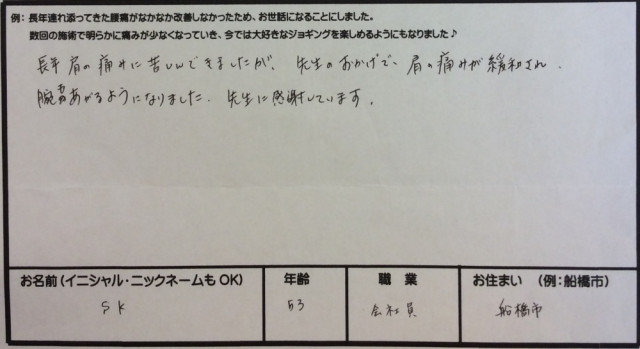 例：長年連れ添ってきた腰痛がなかなか改善しなかったため、お世話になることにしました。
数回の施術で明らかに痛みが少なくなっていき、今では大好きなジョギングを楽しめるようにもなりました♪
長年肩の痛みに苦しんできましたが、先生のおかげで、肩の痛みが緩和され、
腕もあがるようになりました。先生に感謝しています。
お名前（イニシャル・ニックネームもOK） 年齢 職業 お住まい （例：船橋市）
SK 53 会社員 船橋市